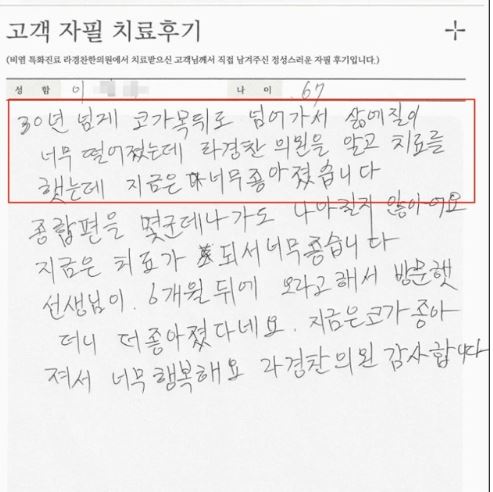 고객 자필 치료후기
(비염 특화진료 라경찬한의원에서 치료받으신 고객님께서 직접 남겨주신 정성스러운 자필 후기입니다.)
성 함 이 나 이 67
30년 넘게 코가목뒤로 넘어가서 삶에질이
너무 떨어졌는데 라경찬 의원을 알고 치료를
했는데 지금은 너무좋아졌습니다
종합편을 몇군데나가도 나아질지 않아어요
지금은 치료가 되서너무좋습니다
선생님이. 6개월 뒤에 오라고해서 방문했
더니 더좋아졌다네요. 지금은코가 좋아
져서 너무행복해요 라경찬의원 감사합니다